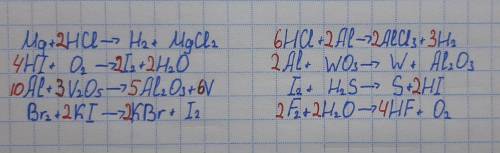 Mg+2HCl→ H₂+ MgCl₂
4HI+ O₂ →2I₂+2H₂O
10Al+3V₂O₅→5Al₂O₃+6V
Br₂+2KI →2KBr+ I₂
6HCl+2Al→2AlCl₃+3H₂
2Al+ WO₃→ W+ Al₂O₃
I₂+ H₂S→ S+2HI
2F₂+2H₂O→4HF+ O₂